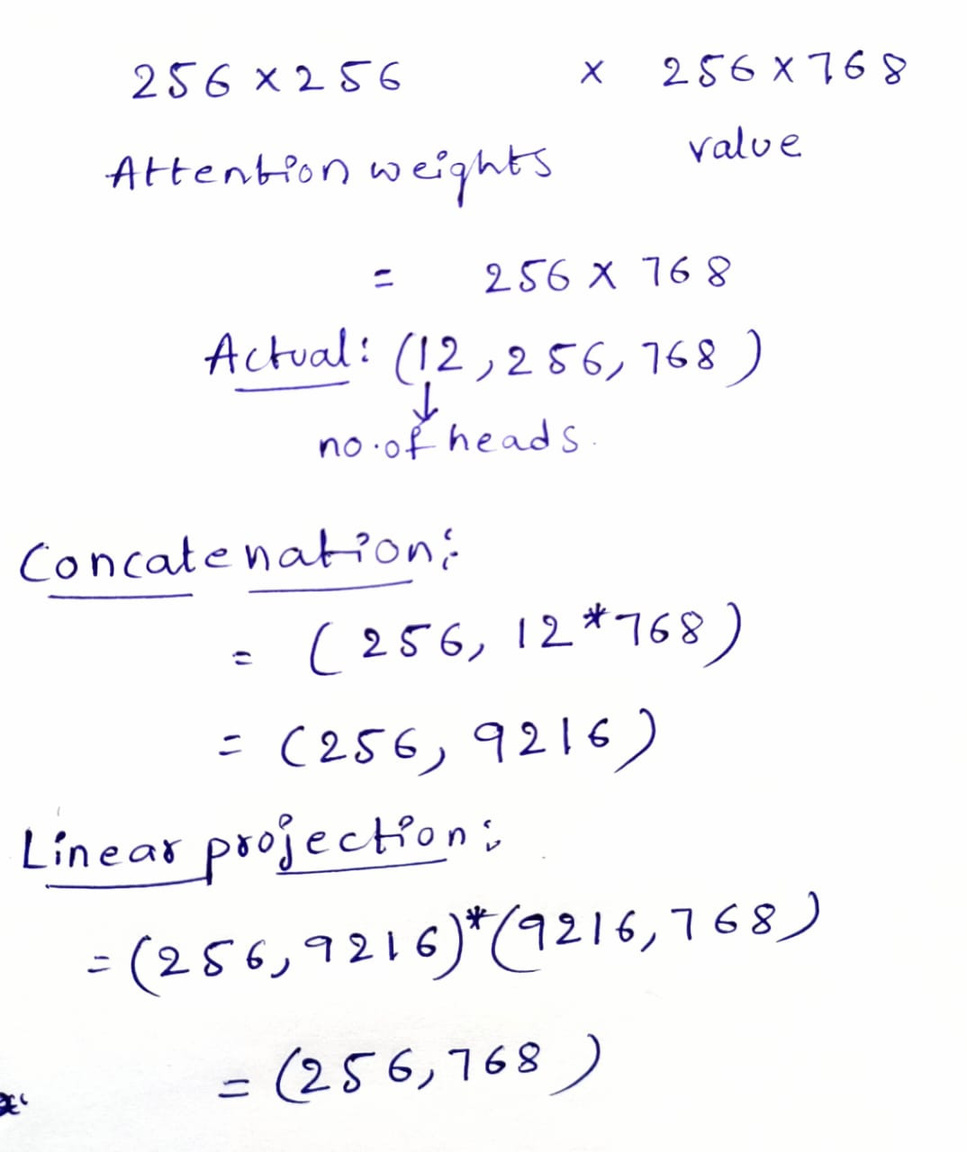 256 x 256 x 256 x 768
Attention weights value
= 256 x 768
Actual: (12, 256, 768)
↓
no. of heads.
Concatenation:
= (256, 12*768)
= (256, 9216)
Linear projection:
= (256, 9216)*(9216, 768)
= (256, 768)